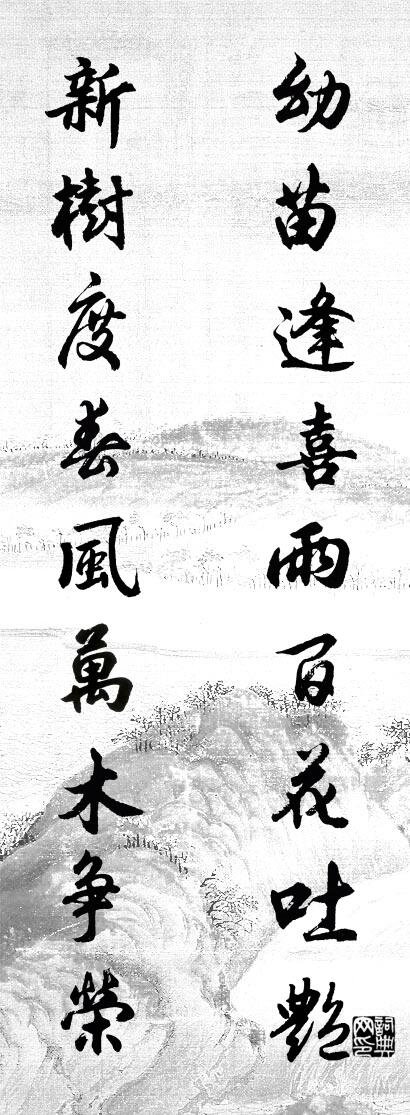 幼苗逢喜雨百花吐艷
新樹度春風萬木争榮